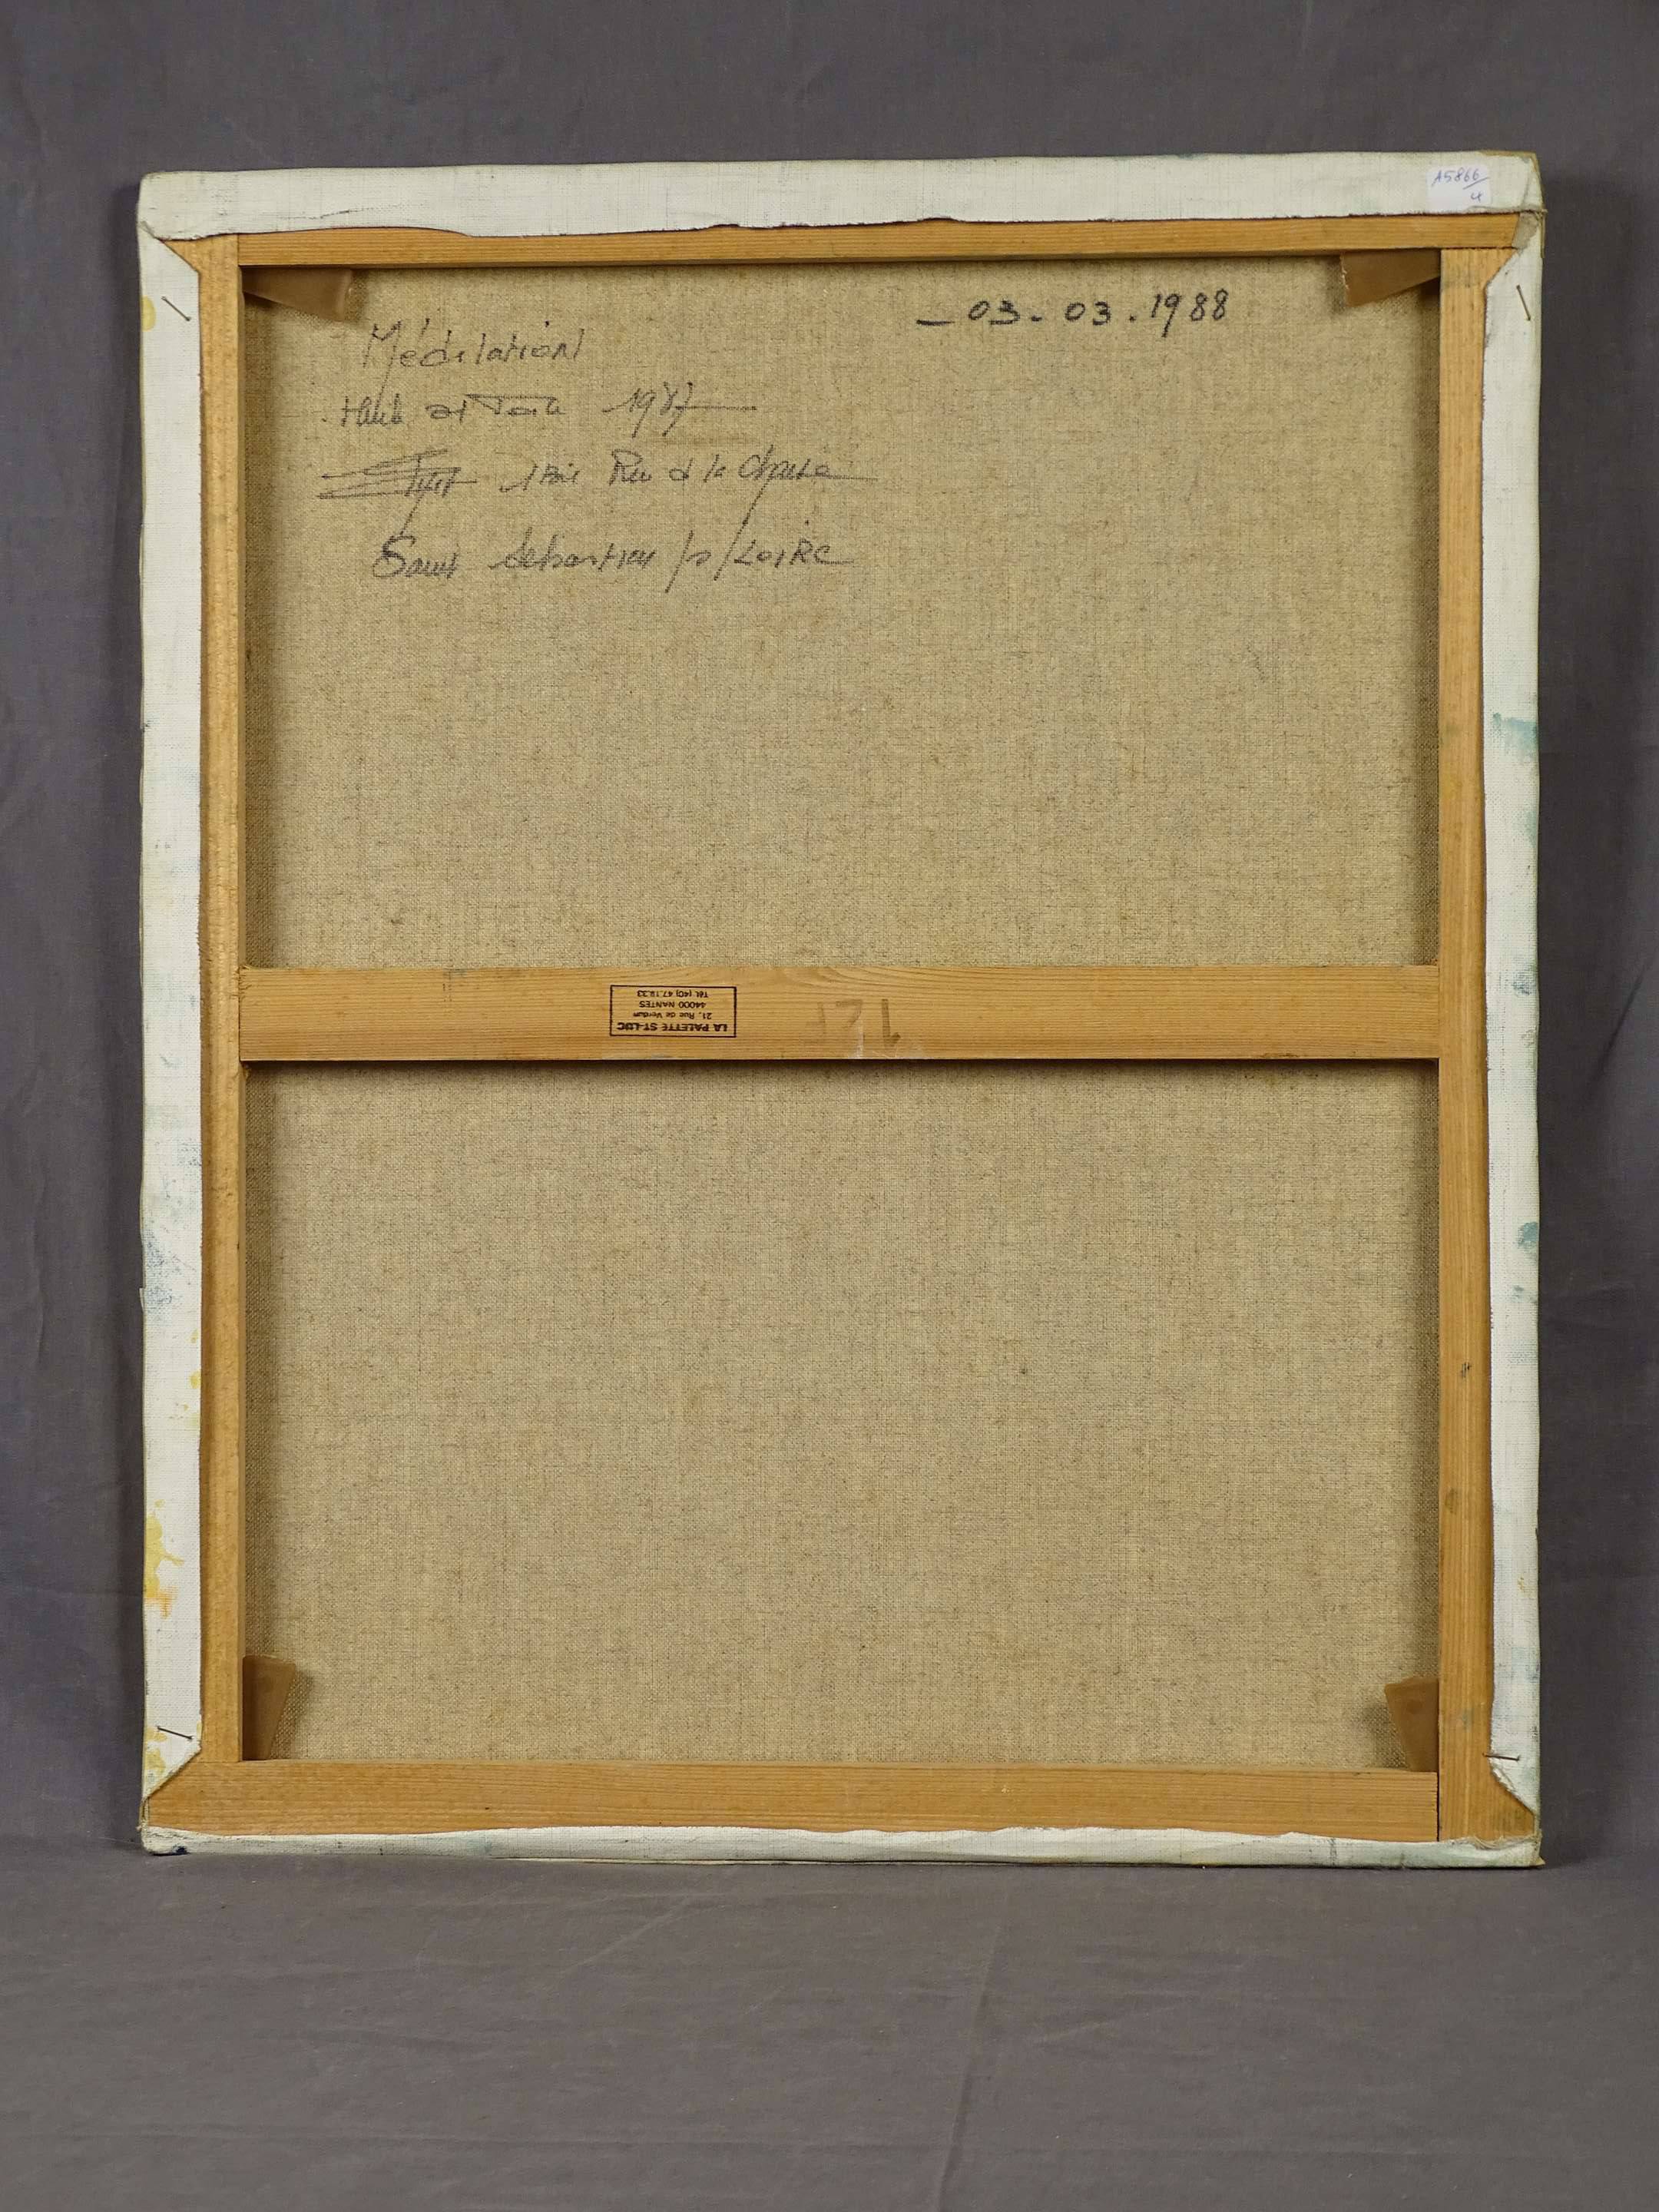 A5866/4
- 03 - 03 . 1988
Méditation
1987
1 Bis Rue de la Chaise
Saint Sébastien /s/ LOIRE
LA PALETTE ST-LUC
21, Rue de Verdun
44000 NANTES
Tél. (40) 47.19.33